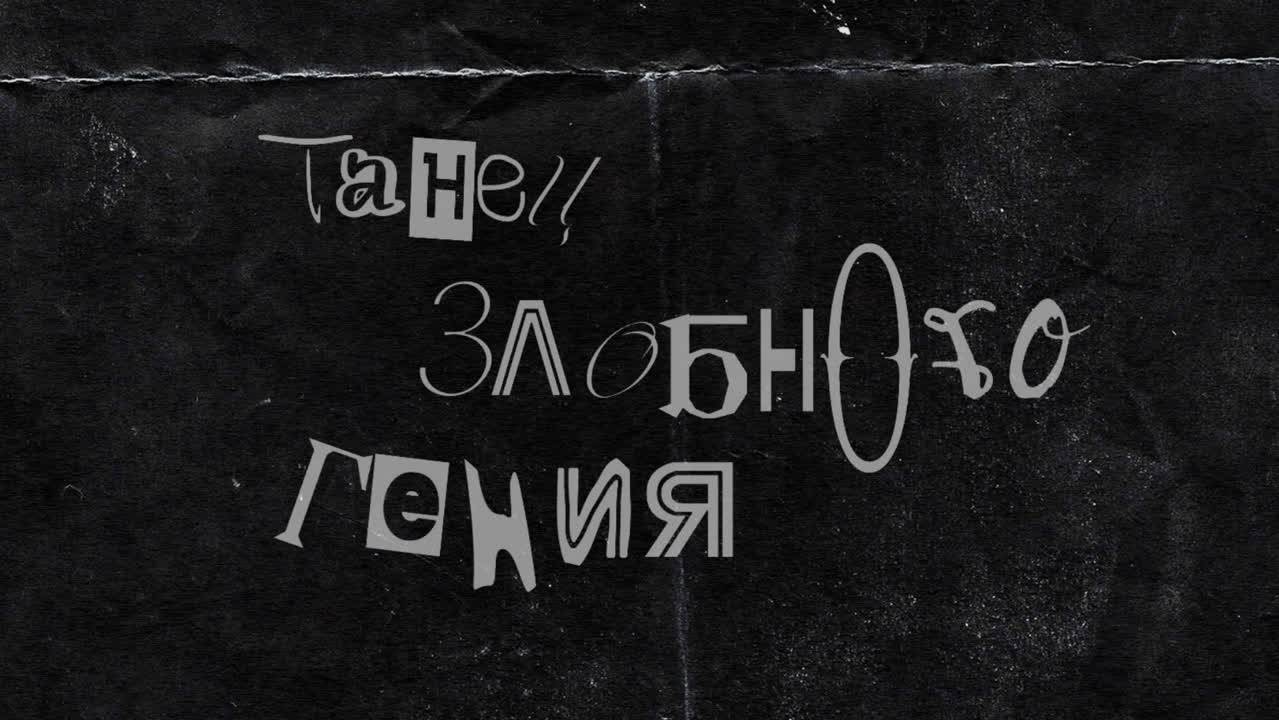 Танец
Злобного
Гения